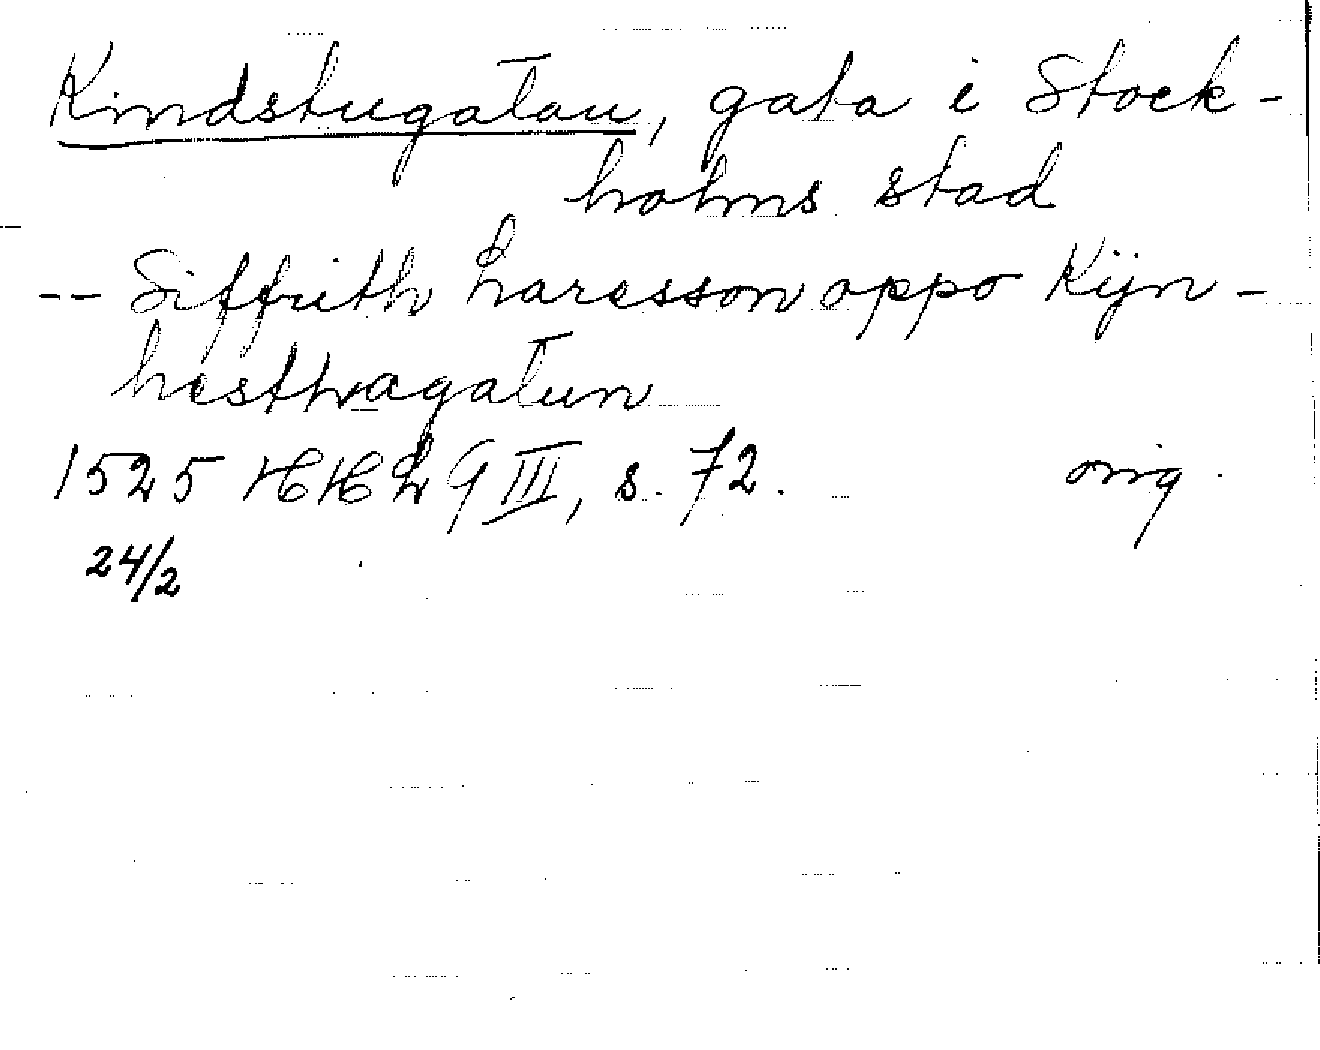 Kindstugatan, gata i Stock-
holms stad
-- Siffrith Laresson oppo Kijn-
hesthragatun
1525 HHL 9 III, s. 72. orig.
24/2